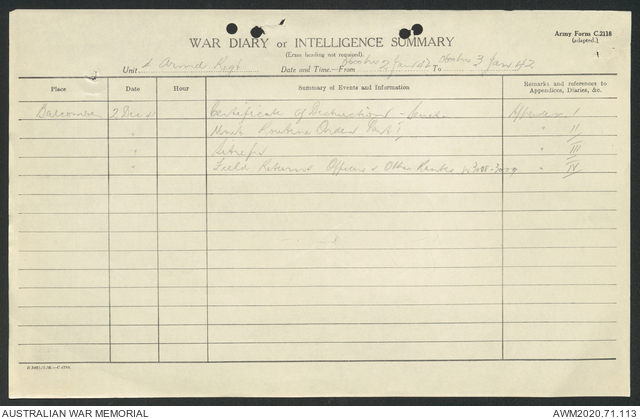 Army Form C.2118
(adapted.)
WAR DIARY or INTELLIGENCE SUMMARY
(Erase heading not required).
Unit Armd Regt Date and Time—From 2 Jan 42 To 3 Jan 42
Place Date Hour Summary of Events and Information Remarks and references to Appendices, Diaries, &c.
Balcombe 2 Certificate of Destruction Appendix I
" Unit Routine Order Part I " II
" Sitreps " III
" Field Returns Officers & Other Ranks " IV
AUSTRALIAN WAR MEMORIAL AWM2020.71.113